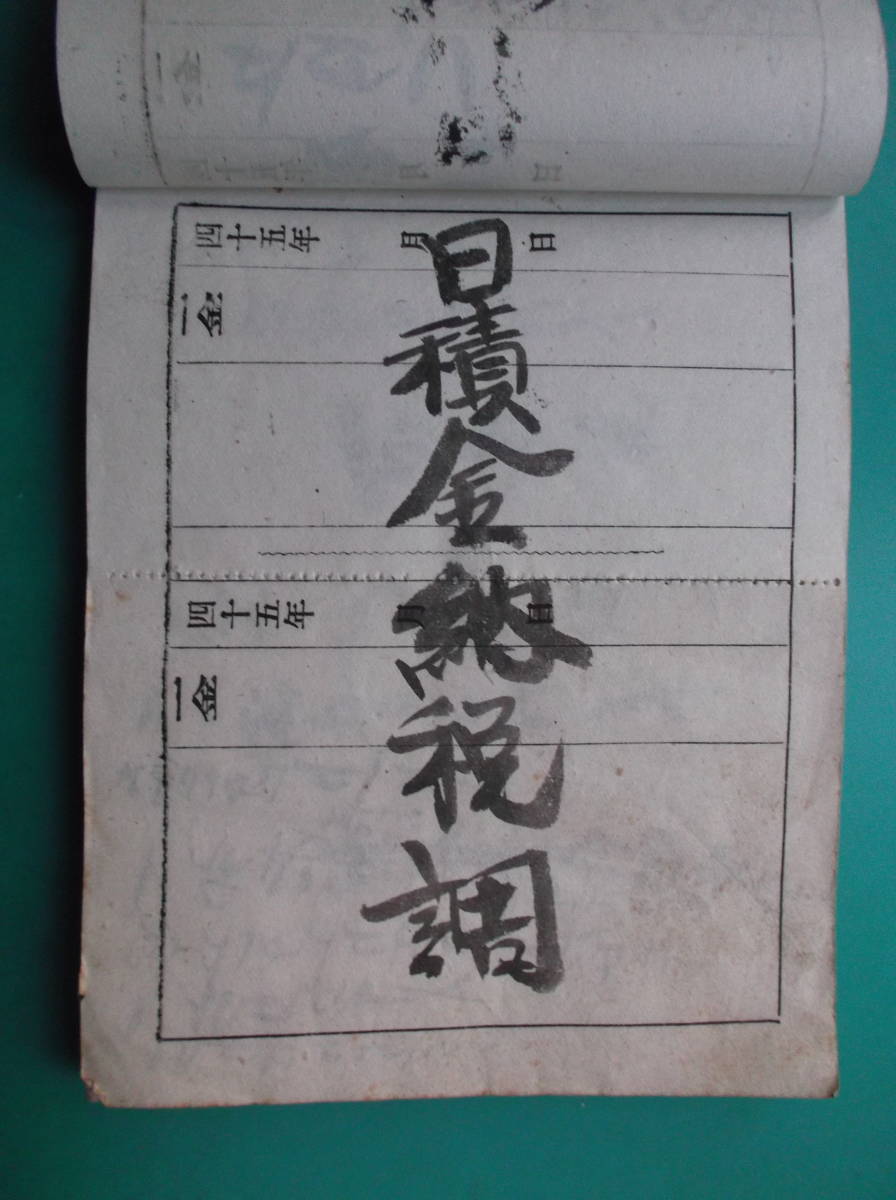 日積金納税調
四十五年 月 日
一金
四十五年 月 日
一金